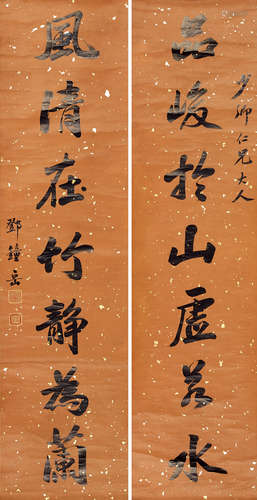 品峻於山虛若水
少卿仁兄大人
風清在竹靜為蘭
鄧鐘岳